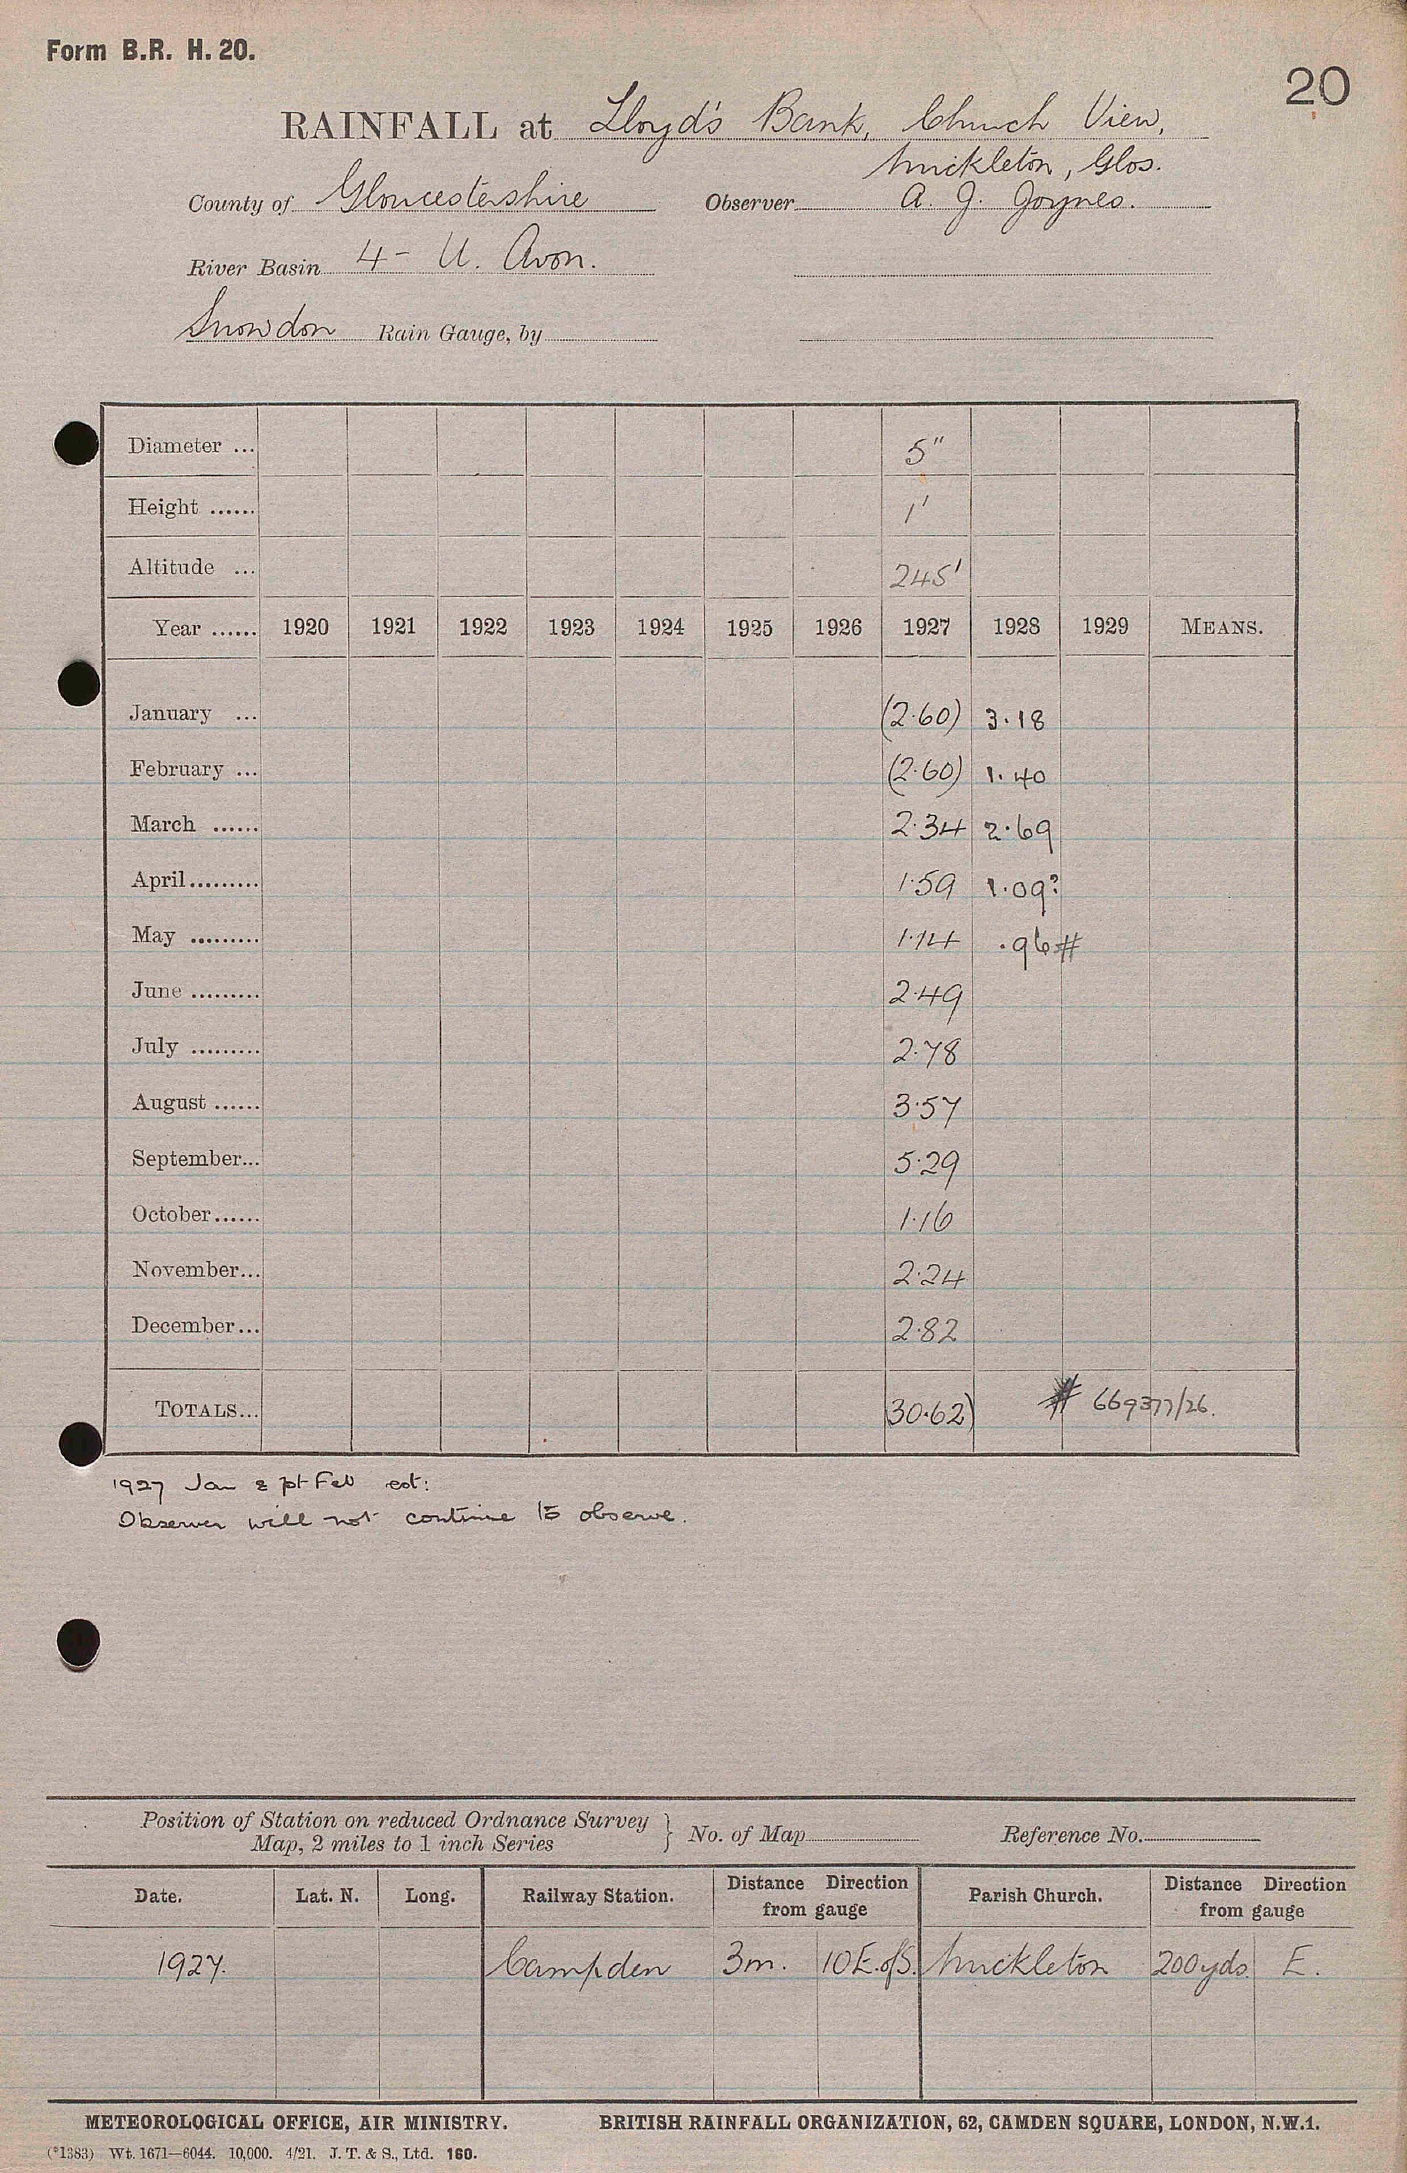 Form B.R. H. 20.
20
RAINFALL at Lloyd's Bank, Church View,
Mickleton, Glos.
County of Gloucestershire Observer A. J. Joynes.
River Basin 4 - U. Avon.
Snowdon Rain Gauge, by
Diameter ... 5"
Height ...... 1'
Altitude ... 245'
Year ...... 1920 1921 1922 1923 1924 1925 1926 1927 1928 1929 MEANS.
January ... (2.60) 3.18
February ... (2.60) 1.40
March ...... 2.34 2.69
April ......... 1.59 1.09?
May ......... 1.14 .96#
June ......... 2.49
July ......... 2.78
August ...... 3.57
September... 5.29
October...... 1.16
November... 2.24
December... 2.82
TOTALS... (30.62) # 669377/26.
1927 Jan & pt Feb est:
Observer will not continue to observe.
Position of Station on reduced Ordnance Survey
Map, 2 miles to 1 inch Series } No. of Map Reference No.
Date. Lat. N. Long. Railway Station. Distance Direction from gauge Parish Church. Distance Direction from gauge
1927. Campden 3m. 10E.ofS. Mickleton 200yds. E.
METEOROLOGICAL OFFICE, AIR MINISTRY. BRITISH RAINFALL ORGANIZATION, 62, CAMDEN SQUARE, LONDON, N.W.1.
(*1383) Wt. 1671—6044. 10,000. 4/21. J. T. & S., Ltd. 160.